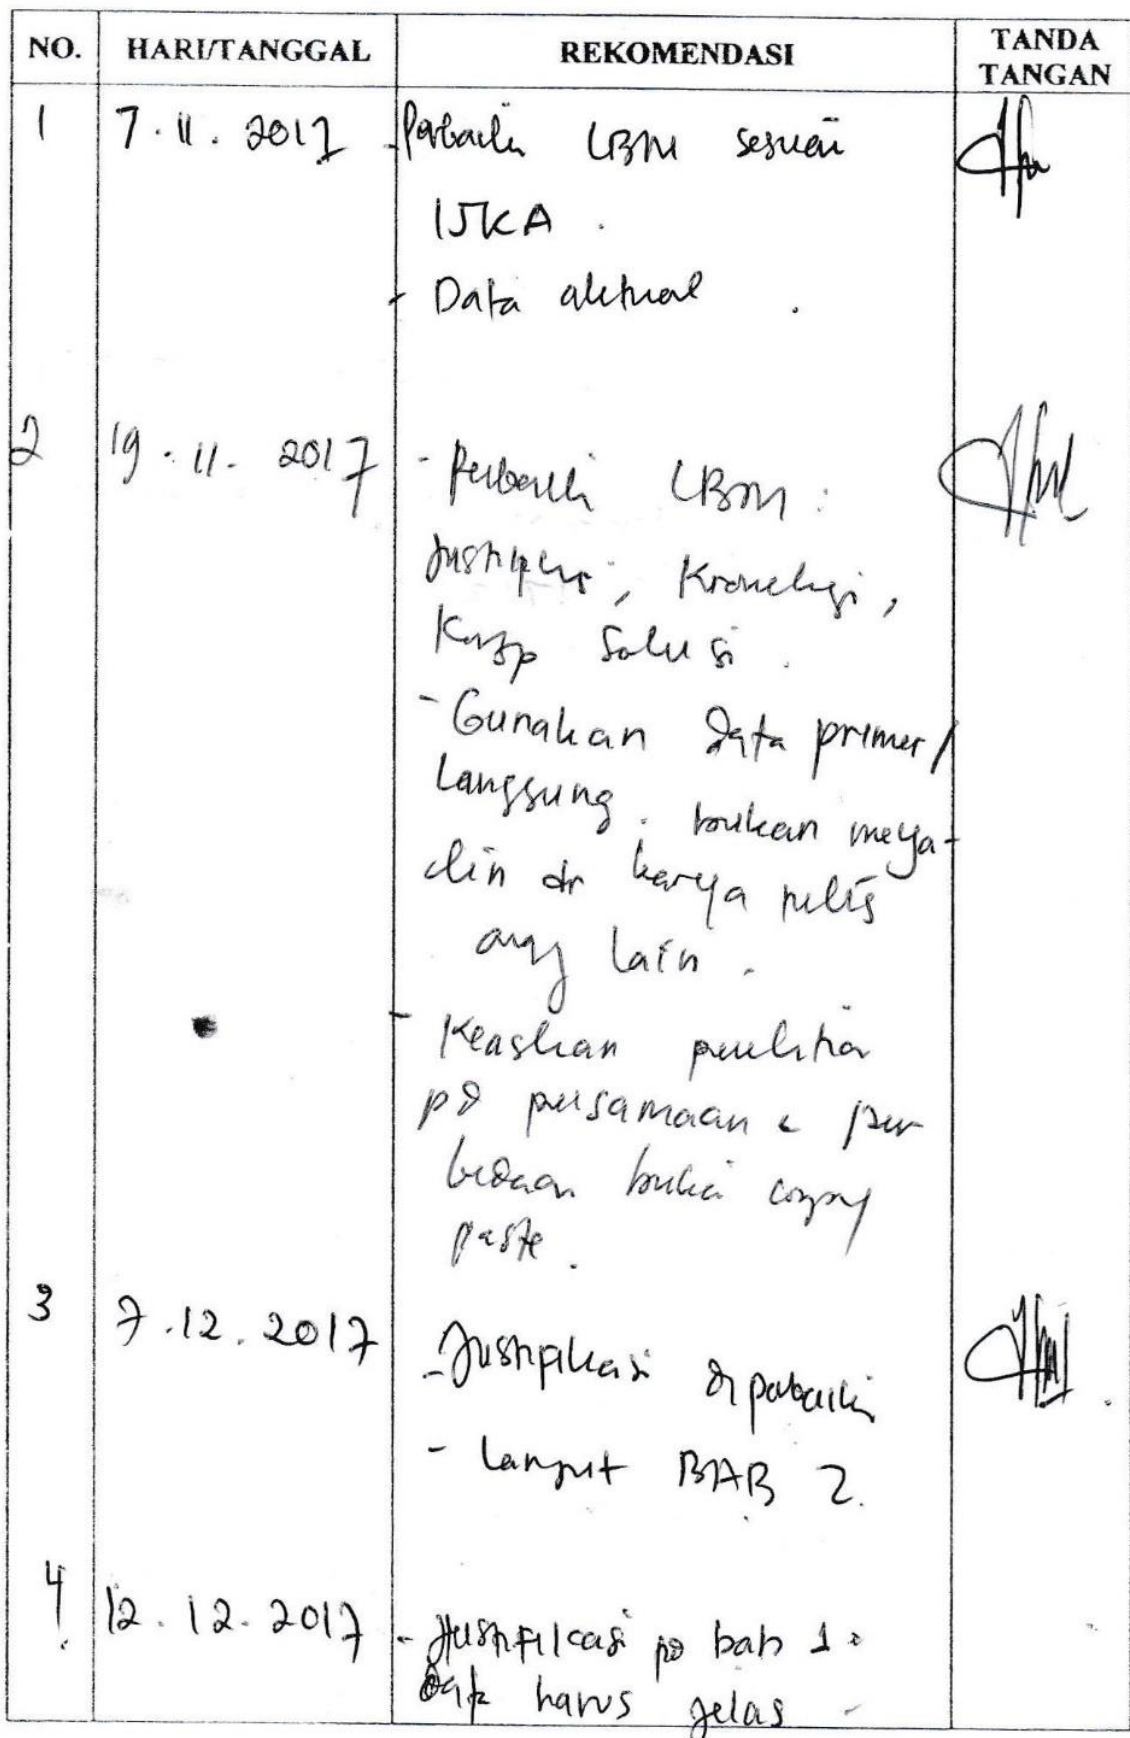 NO. HARI/TANGGAL REKOMENDASI TANDA TANGAN
1 7.11.2017 - Perbaiki LBM sesuai
IJKA.
- Data aktual.
2 19.11.2017 - Perbaiki LBM:
Justifikasi, Kronologi,
Konsp Solusi.
- Gunakan data primer/
Langsung. bukan menya-
lin dr karya tulis
orang lain.
- Keaslian penelitian
pd persamaan & per
bedaan bukan copy
paste.
3 7.12.2017 - Justifikasi diperbaiki
- Lanjut BAB 2.
4 12.12.2017 - Justifikasi pd bab 1.
data harus jelas